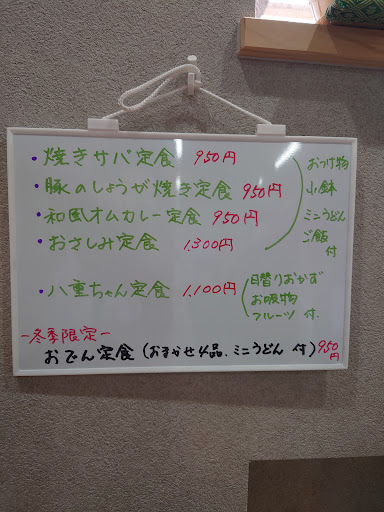 ・焼きサバ定食 950円
・豚のしょうが焼き定食 950円
・和風オムカレー定食 950円
・おさしみ定食 1,300円
おつけ物
小鉢
ミニうどん
ご飯
付
・八重ちゃん定食 1,100円
日替りおかず
お吸物
フルーツ 付.
-冬季限定-
おでん定食(おまかせ4品、ミニうどん 付) 950円